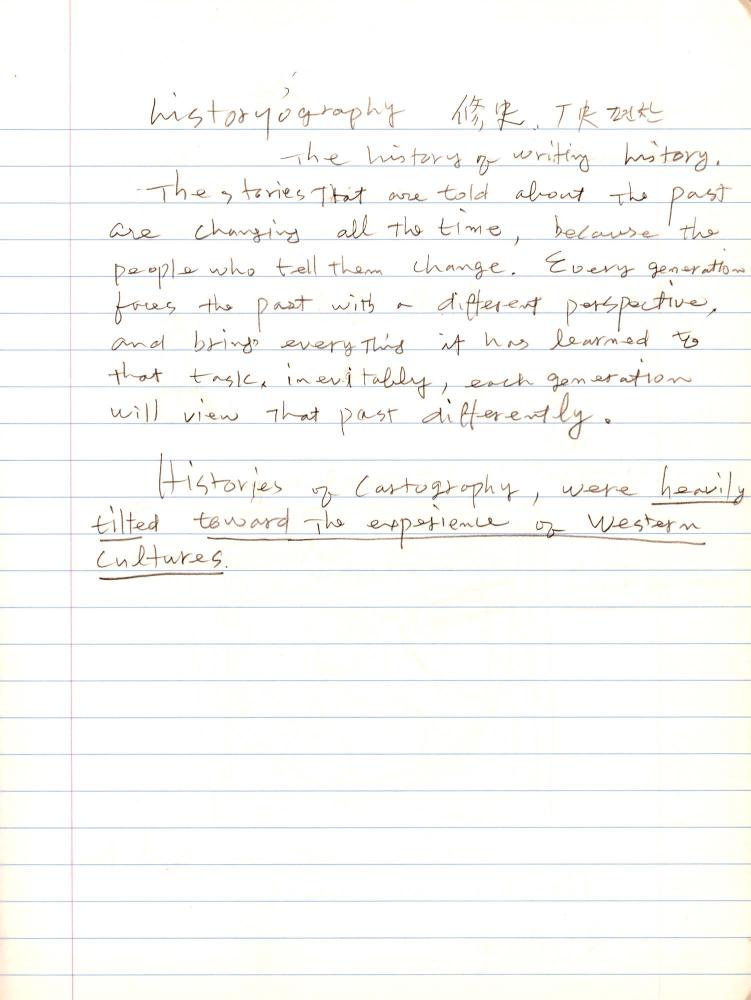 historyography 修史. 正史 편찬
The history of writing history.
The stories That are told about The past
are changing all the time, because the
people who tell them change. Every generation
faces the past with a different perspective,
and brings every Thing it has learned to
that task. inevitably, each generation
will view That past differently.
Histories of Cartography, were heavily
tilted toward The experience of Western
Cultures.